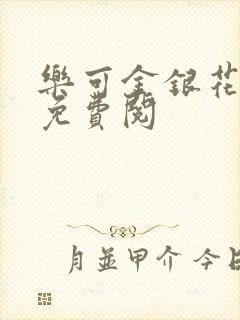 樂可金銀花
免費閱
月並甲介 今日